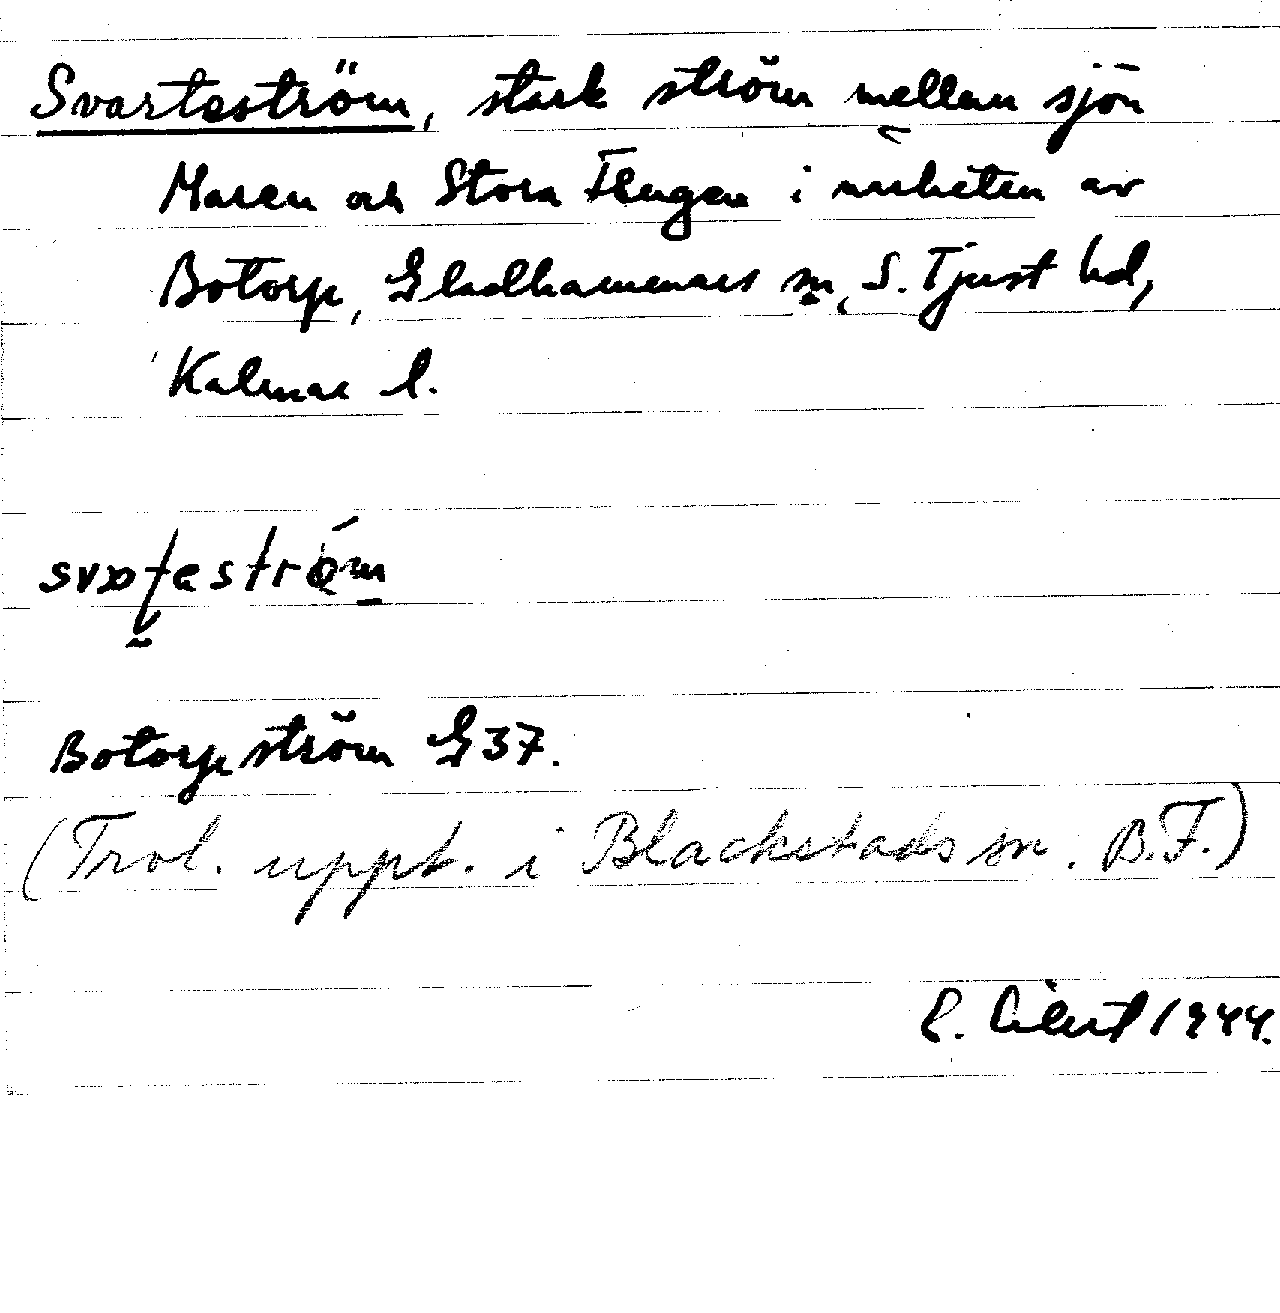 Svarteström, stark ström mellan sjön
Maren och Stora Flugen i närheten av
Botorp, Gladhammars sn, S. Tjust hd,
Kalmar l.
Botorpström G37.
(Trol. uppt. i Blackstads sn. B.F.)
1944.